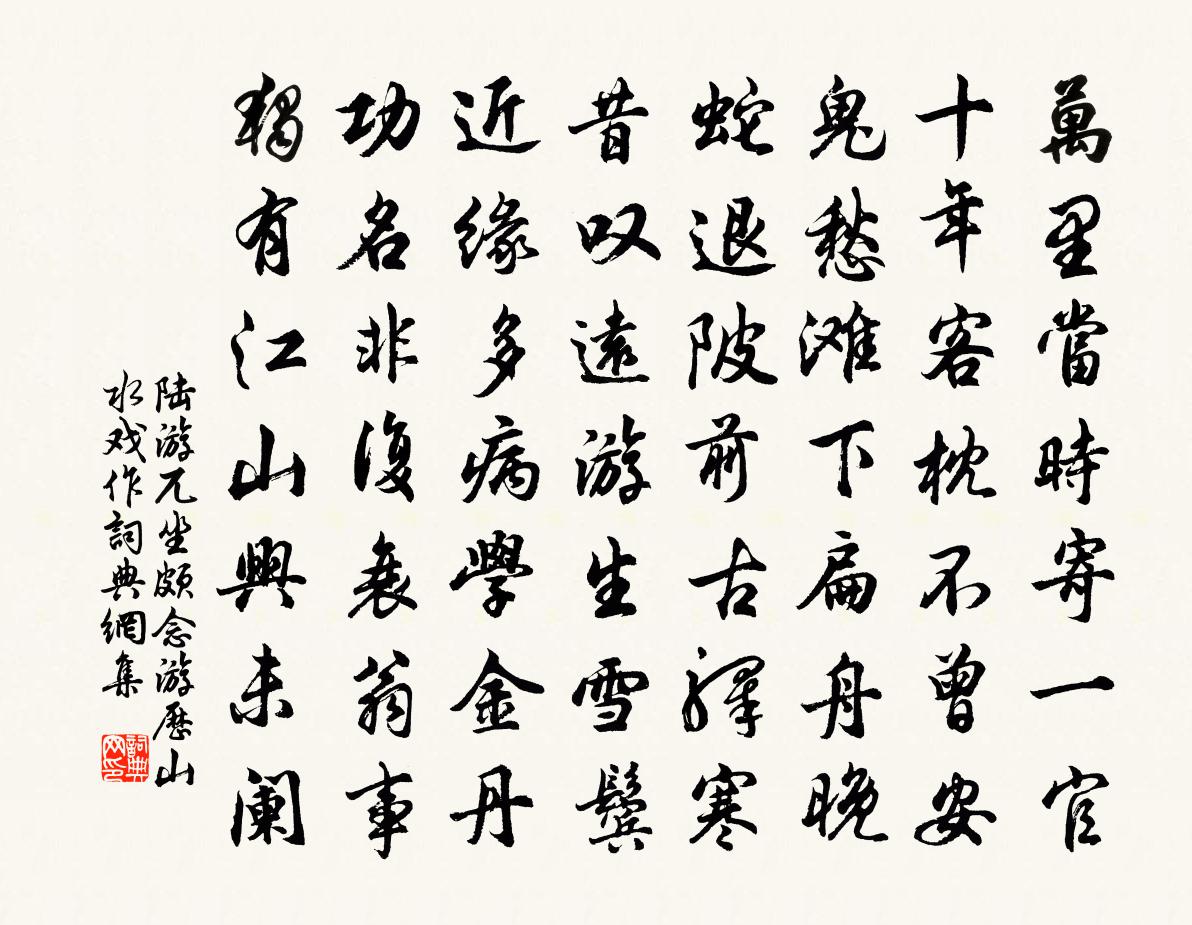 萬里當時寄一官
十年客枕不曾安
鬼愁滩下扁舟晚
蛇退陂前古驛寒
昔叹遠游生雪鬓
近缘多病學金丹
功名非復衰翁事
獨有江山興未阑
陆游兀坐頗念游歷山
水戏作詞典網集
詞典
网印